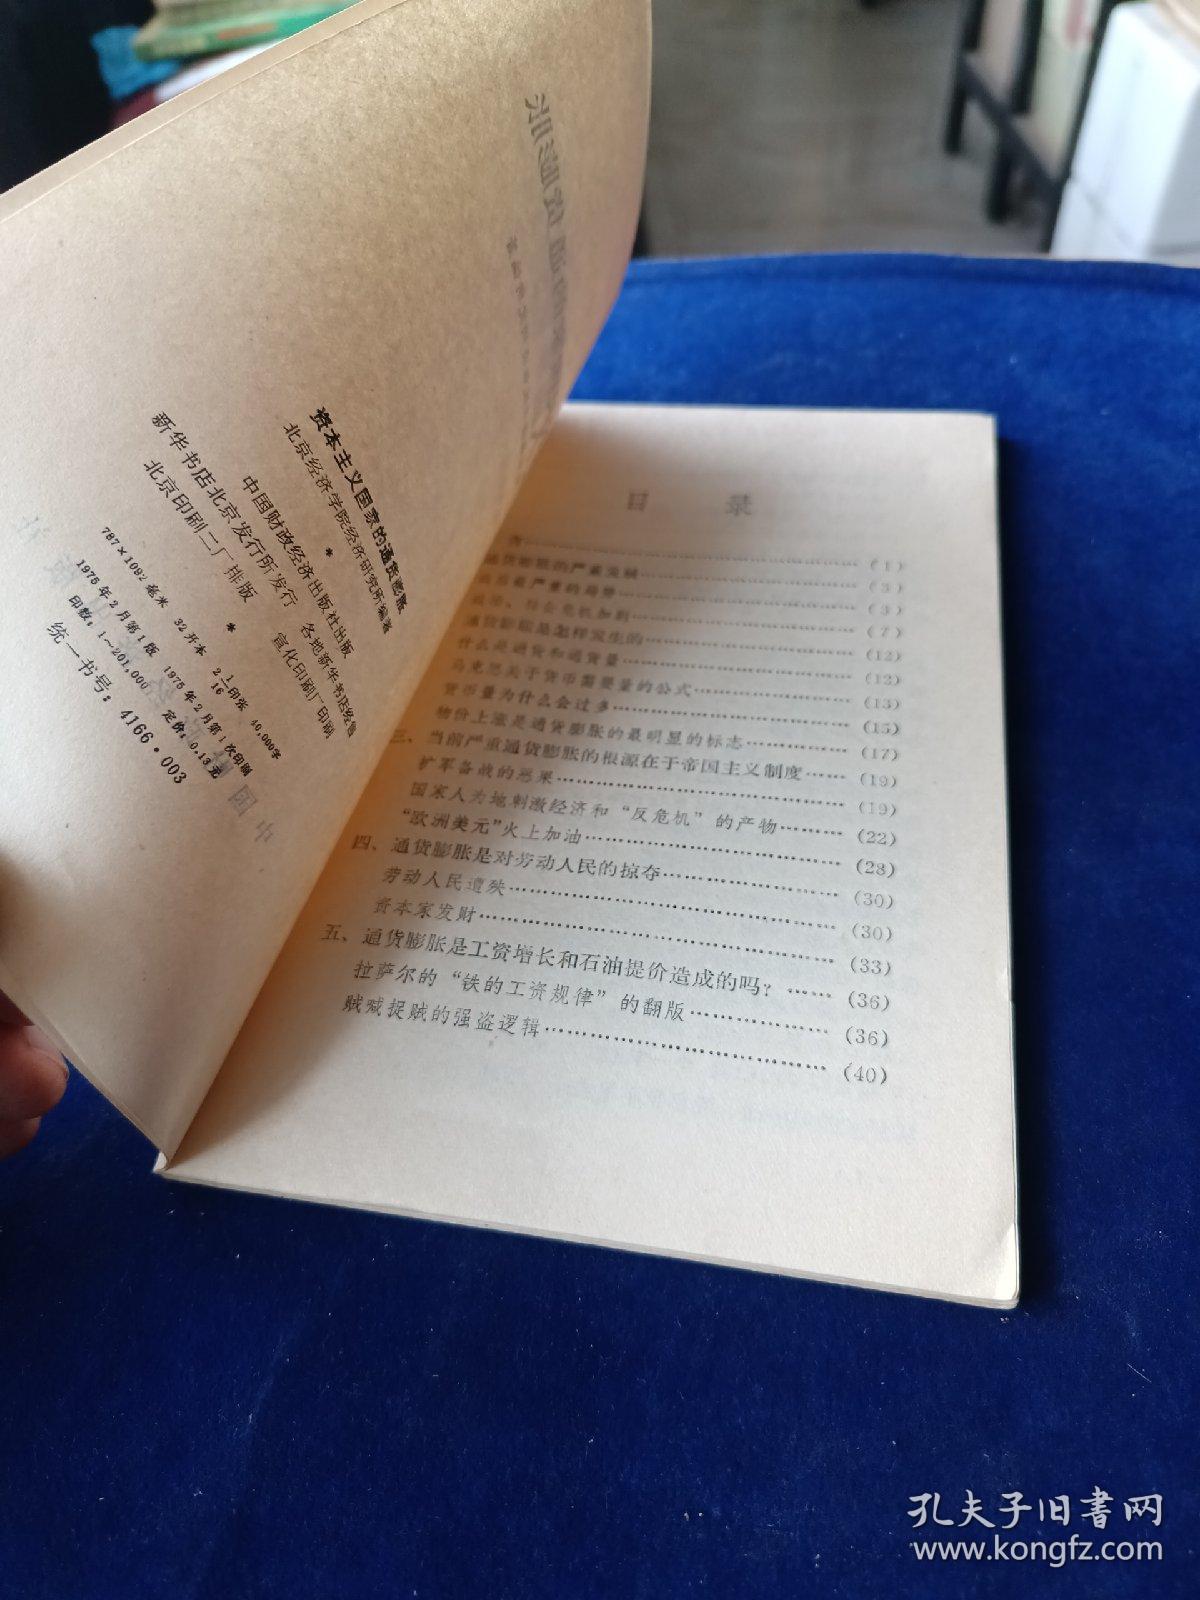 资本主义国家的通货膨胀
北京经济学院经济研究所编著
*
中国财政经济出版社出版
新华书店北京发行所发行 各地新华书店经售
北京印刷二厂排版 宣化印刷厂印刷
*
787×1092毫米 32开本 2 1/16印张 40,000字
1975年2月第1版 1975年2月第1次印刷
印数：1—201,000 定价：0.13元
统一书号：4166·003
目 录
言……(1)
通货膨胀的严重发展……(3)
最严重的局势……(3)
社会危机加剧……(7)
通货膨胀是怎样发生的……(12)
什么是通货和通货量……(12)
马克思关于货币需要量的公式……(13)
货币量为什么会过多……(15)
物价上涨是通货膨胀的最明显的标志……(17)
三、当前严重通货膨胀的根源在于帝国主义制度……(19)
扩军备战的恶果……(19)
国家人为地刺激经济和“反危机”的产物……(22)
“欧洲美元”火上加油……(28)
四、通货膨胀是对劳动人民的掠夺……(30)
劳动人民遭殃……(30)
资本家发财……(33)
五、通货膨胀是工资增长和石油提价造成的吗？……(36)
拉萨尔的“铁的工资规律”的翻版……(36)
贼喊捉贼的强盗逻辑……(40)
孔夫子旧书网
www.kongfz.com